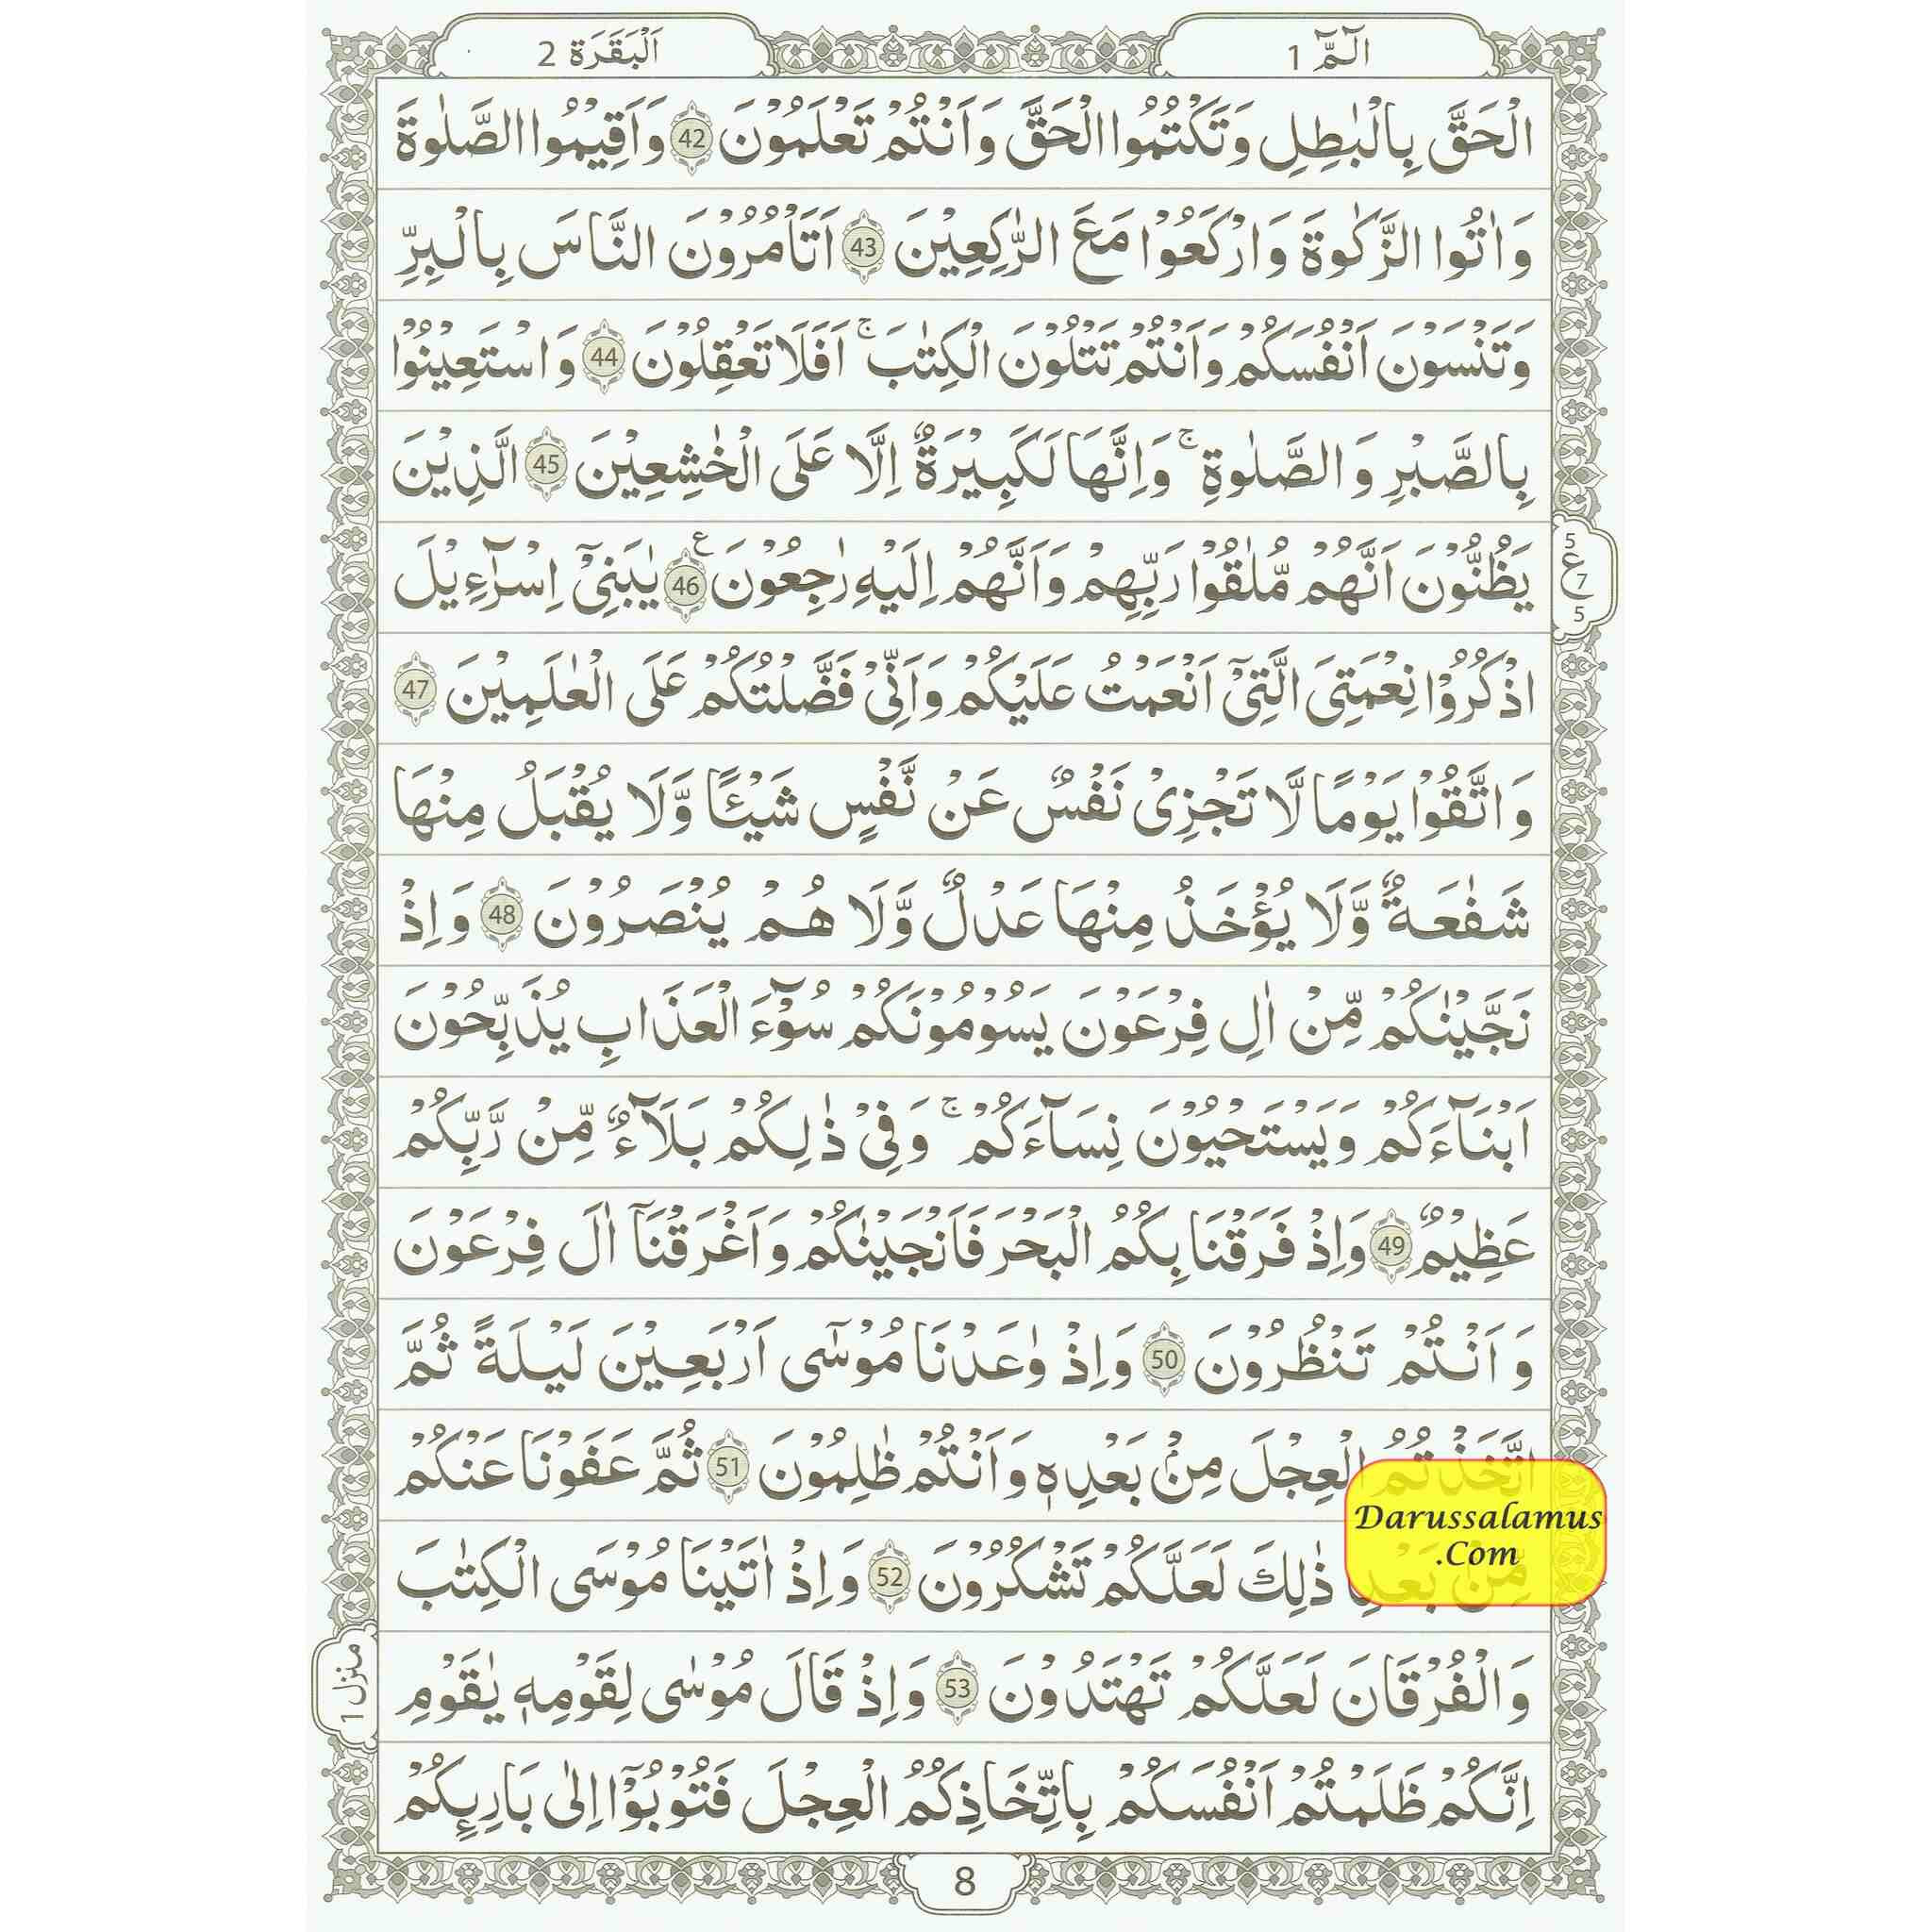 الٓـمّٓ 1
اَلْبَقَرَة 2
الْحَقَّ بِالْبٰطِلِ وَتَكْتُمُوا الْحَقَّ وَاَنْتُمْ تَعْلَمُوْنَ 42 وَاَقِيْمُوا الصَّلٰوةَ
وَاٰتُوا الزَّكٰوةَ وَارْكَعُوْا مَعَ الرّٰكِعِيْنَ 43 اَتَاْمُرُوْنَ النَّاسَ بِالْبِرِّ
وَتَنْسَوْنَ اَنْفُسَكُمْ وَاَنْتُمْ تَتْلُوْنَ الْكِتٰبَ ۚ اَفَلَا تَعْقِلُوْنَ 44 وَاسْتَعِيْنُوْا
بِالصَّبْرِ وَالصَّلٰوةِ ۚ وَاِنَّهَا لَكَبِيْرَةٌ اِلَّا عَلَى الْخٰشِعِيْنَ 45 الَّذِيْنَ
يَظُنُّوْنَ اَنَّهُمْ مُّلٰقُوْا رَبِّهِمْ وَاَنَّهُمْ اِلَيْهِ رٰجِعُوْنَ 46 ع يٰبَنِيْٓ اِسْرَآءِيْلَ
5 ع 7 5
اذْكُرُوْا نِعْمَتِيَ الَّتِيْٓ اَنْعَمْتُ عَلَيْكُمْ وَاَنِّيْ فَضَّلْتُكُمْ عَلَى الْعٰلَمِيْنَ 47
وَاتَّقُوْا يَوْمًا لَّا تَجْزِيْ نَفْسٌ عَنْ نَّفْسٍ شَيْئًا وَّلَا يُقْبَلُ مِنْهَا
شَفٰعَةٌ وَّلَا يُؤْخَذُ مِنْهَا عَدْلٌ وَّلَا هُمْ يُنْصَرُوْنَ 48 وَاِذْ
نَجَّيْنٰكُمْ مِّنْ اٰلِ فِرْعَوْنَ يَسُوْمُوْنَكُمْ سُوْٓءَ الْعَذَابِ يُذَبِّحُوْنَ
اَبْنَآءَكُمْ وَيَسْتَحْيُوْنَ نِسَآءَكُمْ ۚ وَفِيْ ذٰلِكُمْ بَلَآءٌ مِّنْ رَّبِّكُمْ
عَظِيْمٌ 49 وَاِذْ فَرَقْنَا بِكُمُ الْبَحْرَ فَاَنْجَيْنٰكُمْ وَاَغْرَقْنَآ اٰلَ فِرْعَوْنَ
وَاَنْتُمْ تَنْظُرُوْنَ 50 وَاِذْ وٰعَدْنَا مُوْسٰٓى اَرْبَعِيْنَ لَيْلَةً ثُمَّ
اتَّخَذْتُمُ الْعِجْلَ مِنْۢ بَعْدِهٖ وَاَنْتُمْ ظٰلِمُوْنَ 51 ثُمَّ عَفَوْنَا عَنْكُمْ
مِّنْۢ بَعْدِ ذٰلِكَ لَعَلَّكُمْ تَشْكُرُوْنَ 52 وَاِذْ اٰتَيْنَا مُوْسَى الْكِتٰبَ
Darussalamus
.Com
وَالْفُرْقَانَ لَعَلَّكُمْ تَهْتَدُوْنَ 53 وَاِذْ قَالَ مُوْسٰى لِقَوْمِهٖ يٰقَوْمِ
منزل 1
اِنَّكُمْ ظَلَمْتُمْ اَنْفُسَكُمْ بِاتِّخَاذِكُمُ الْعِجْلَ فَتُوْبُوْٓا اِلٰى بَارِئِكُمْ
8